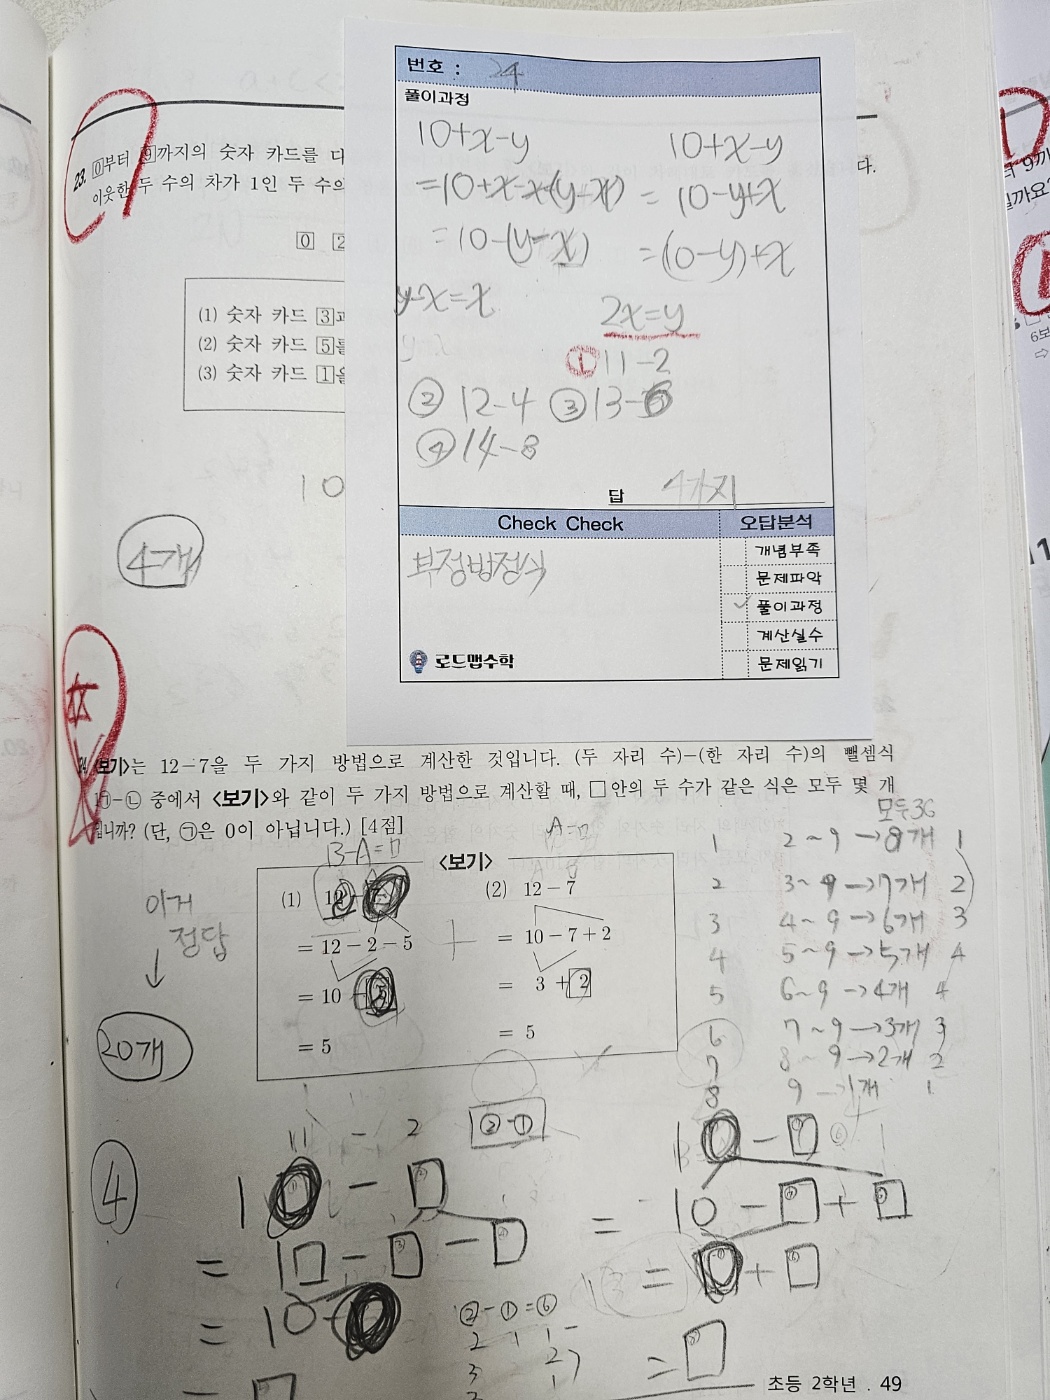 번호 : 24
풀이과정
10+x-y
=10+x-x-(y-x)
=10-(y-x)
y-x=x
10+x-y
=10-y+x
=(10-y)+x
2x=y
① 11-2
② 12-4 ③ 13-6
④ 14-8
답 4가지
Check Check
오답분석
부정방정식
개념부족
문제파악
✓ 풀이과정
계산실수
문제읽기
로드맵수학
23. 0부터 9까지의 숫자 카드를 다
이웃한 두 수의 차가 1인 두 수의
다.
0 2
(1) 숫자 카드 3과
(2) 숫자 카드 5를
(3) 숫자 카드 1을
10
4개
<보기>는 12-7을 두 가지 방법으로 계산한 것입니다. (두 자리 수)-(한 자리 수)의 뺄셈식
1㉠-㉡ 중에서 <보기>와 같이 두 가지 방법으로 계산할 때, □안의 두 수가 같은 식은 모두 몇 개
입니까? (단, ㉠은 0이 아닙니다.) [4점]
모두36
B-A=□
A=□
<보기>
(1) 12-7
= 12-2-5
= 10-5
= 5
(2) 12-7
= 10-7+2
= 3+2
= 5
이거
정답
↓
20개
4
1 2~9→8개 1
2 3~9→7개 2
3 4~9→6개 3
4 5~9→5개 4
5 6~9→4개 4
6 7~9→3개 3
7 8~9→2개 2
8 9→1개 1
11 - 2
②-①
1□ - □
= 1□ - □ - □
= 10 - □
= □
1□ - □
= 10 - □ + □
= □ + □
= □
②-①=⑥
2 1 1
3 2 1
초등 2학년 . 49